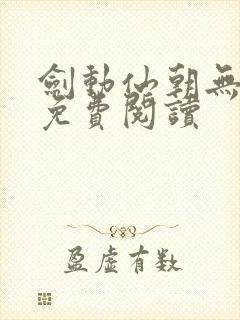 劍動仙朝無
免費閱讀
盈虛有数